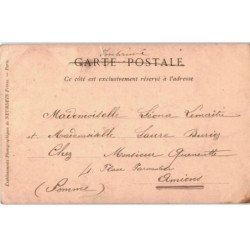 Imprimé
CARTE POSTALE
Ce côté est exclusivement réservé à l'adresse
Mademoiselle Léona Lemaitre
et Mademoiselle Laure
Chez Monsieur
4. Place Parmentier
Amiens
(Somme)
Etablissements Photographiques de NEURDEIN Frères. — Paris.